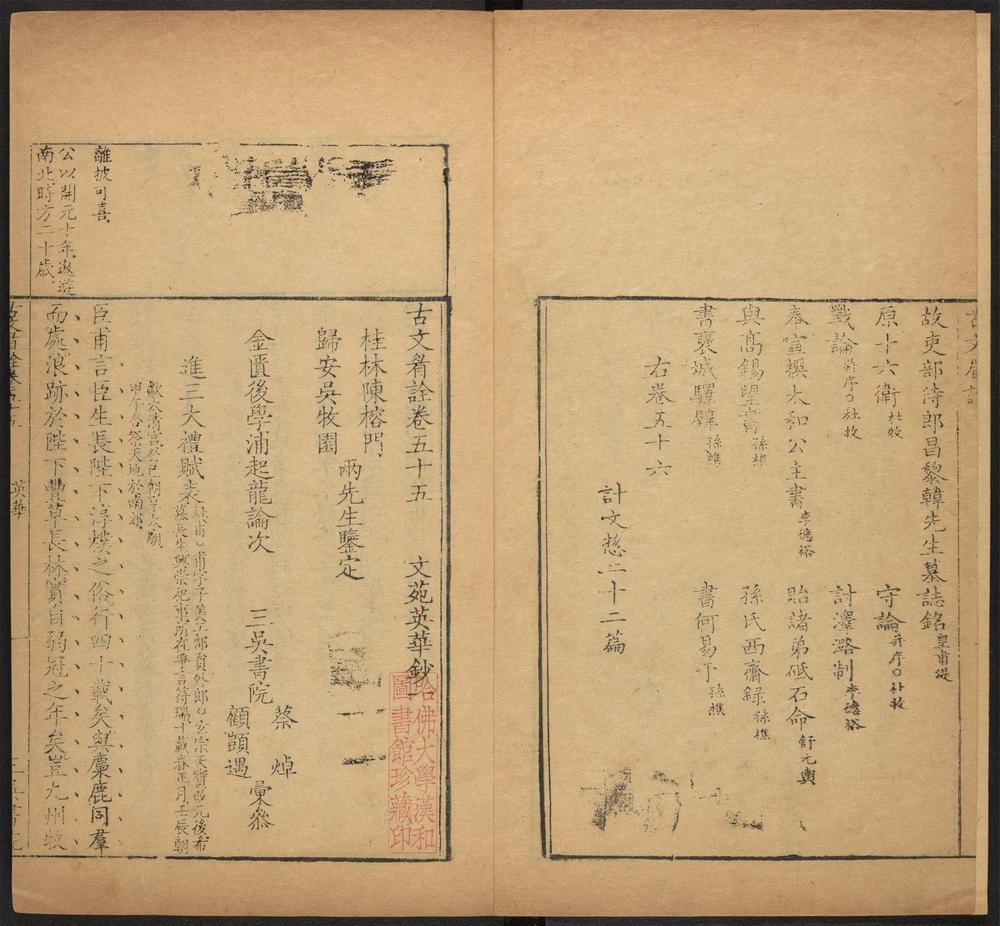 故吏部侍郎昌黎韓先生墓誌銘 皇甫湜
原十六衛 杜牧 守論 并序○杜牧
戰論 并序○杜牧 討澤潞制 李德裕
奉宣撰太和公主書 李德裕 貽諸弟砥石命 舒元輿
與高錫望書 孫樵 孫氏西齋録 孫樵
書褒城驛壁 孫樵 書何易于 孫樵
右卷五十六
計文惣二十二篇
古文眉詮卷五十五 文苑英華鈔
桂林陳榕門
歸安吳牧園
兩先生鑒定
金匱後學浦起龍論次 三吳書院
蔡焯
顧顗遇
彙叅
進三大禮賦表
杜甫○甫字子美工部員外郎○玄宗天寶改元後布
慕長生興崇祀事所在爭言符瑞十載春正月壬辰朝
獻太清宮癸巳朝享太廟
甲午合祭天地於南郊
臣甫言臣生長陛下淳樸之俗行四十載矣與麋鹿同羣
而處浪跡於陛下豐草長林實自弱冠之年矣豈九州牧
離披可喜
公以開元十年遨遊
南北時方二十歲
英華
哈佛大學漢和
圖書館珍藏印